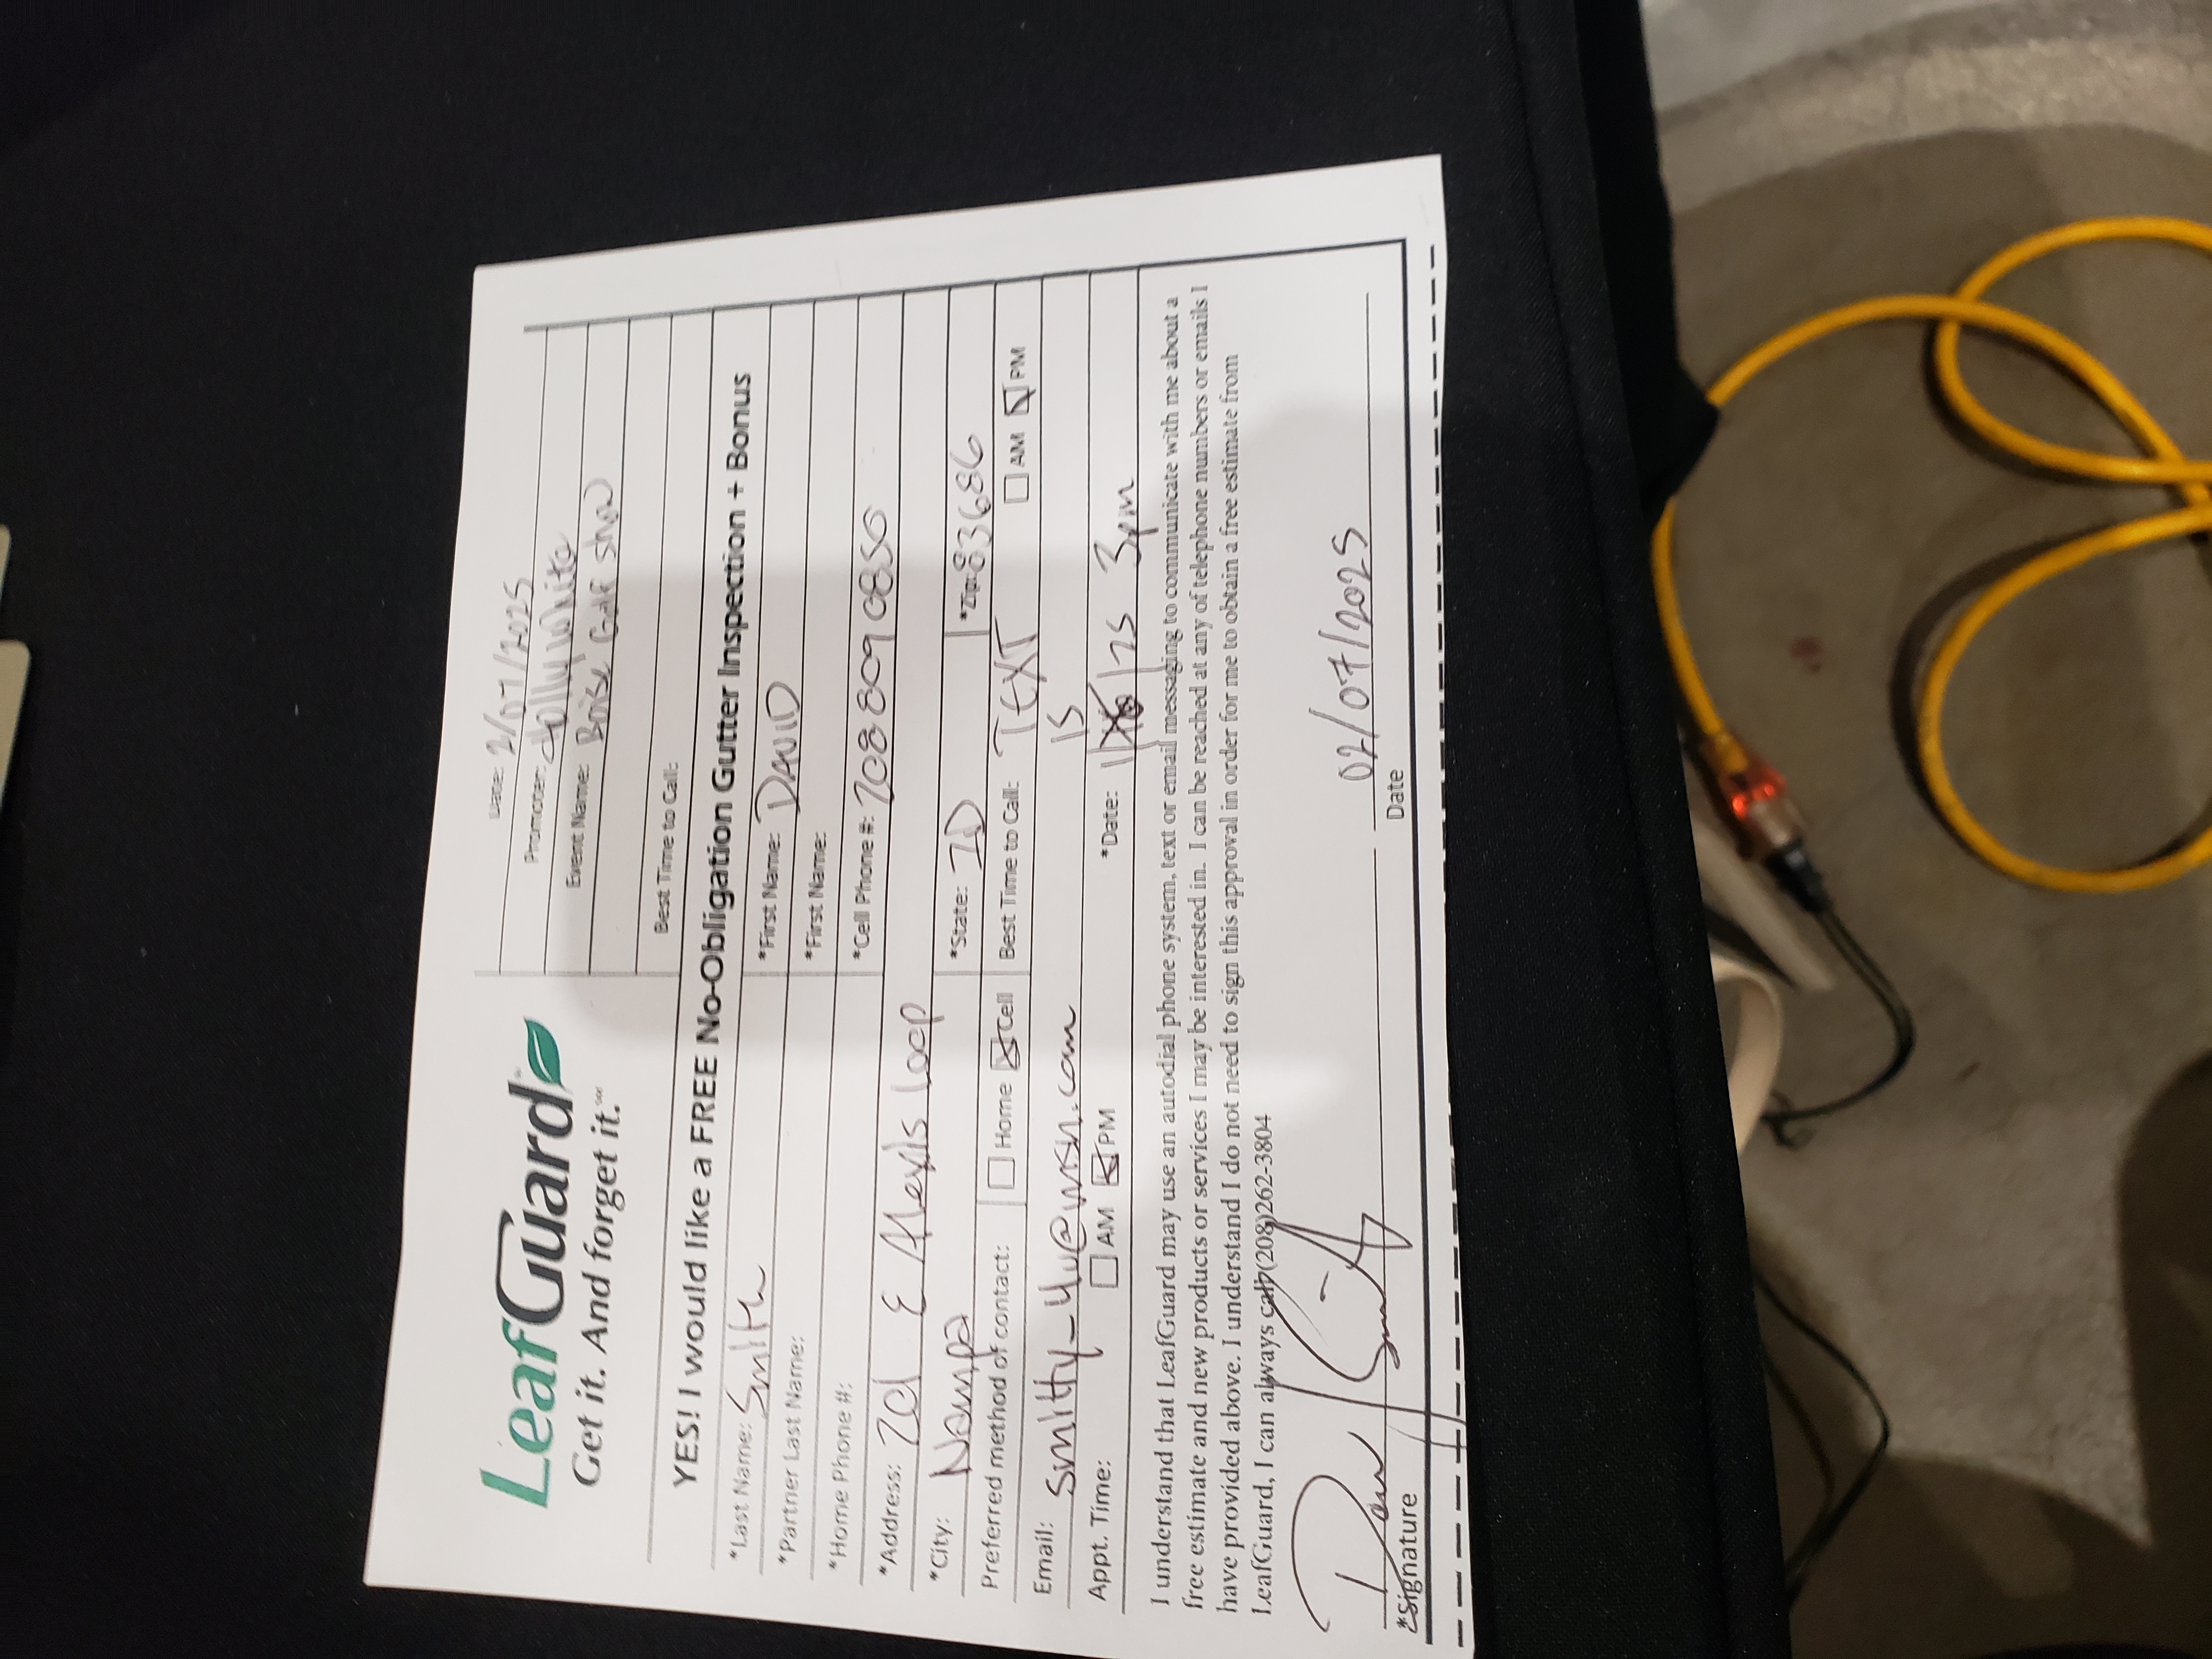 LeafGuard
Get it. And forget it.℠
Date: 2/07/2025
Promoter: Holly White
Event Name: Boise Golf Show
Best Time to Call:
YES! I would like a FREE No-Obligation Gutter Inspection + Bonus
*Last Name: Smith *First Name: DAVID
*Partner Last Name: *First Name:
*Home Phone #: *Cell Phone #: 208 809 0850
*Address: E Alexis Loop
*City: Nampa *State: ID *Zip: 83686
Preferred method of contact: Home Cell Best Time to Call: TEXT AM PM
Email:
Appt. Time: AM PM *Date: 1/15/25 3pm
I understand that LeafGuard may use an autodial phone system, text or email messaging to communicate with me about a
free estimate and new products or services I may be interested in. I can be reached at any of telephone numbers or emails I
have provided above. I understand I do not need to sign this approval in order for me to obtain a free estimate from
LeafGuard, I can always call (208)262-3804
02/07/2025
*Signature Date